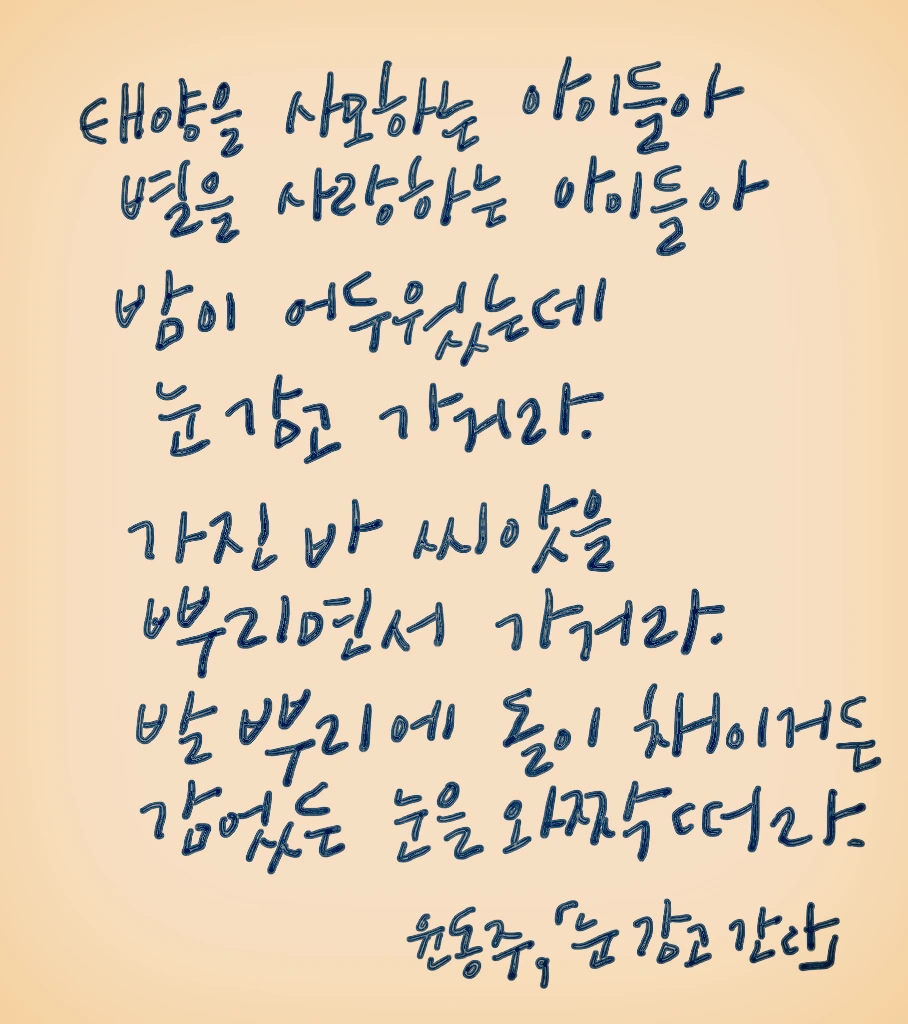 태양을 사모하는 아이들아
별을 사랑하는 아이들아
밤이 어두웠는데
눈 감고 가거라.
가진 바 씨앗을
뿌리면서 가거라.
발 뿌리에 돌이 채이거든
감었든 눈을 와짝 떠라.
윤동주, 「눈 감고 간다」